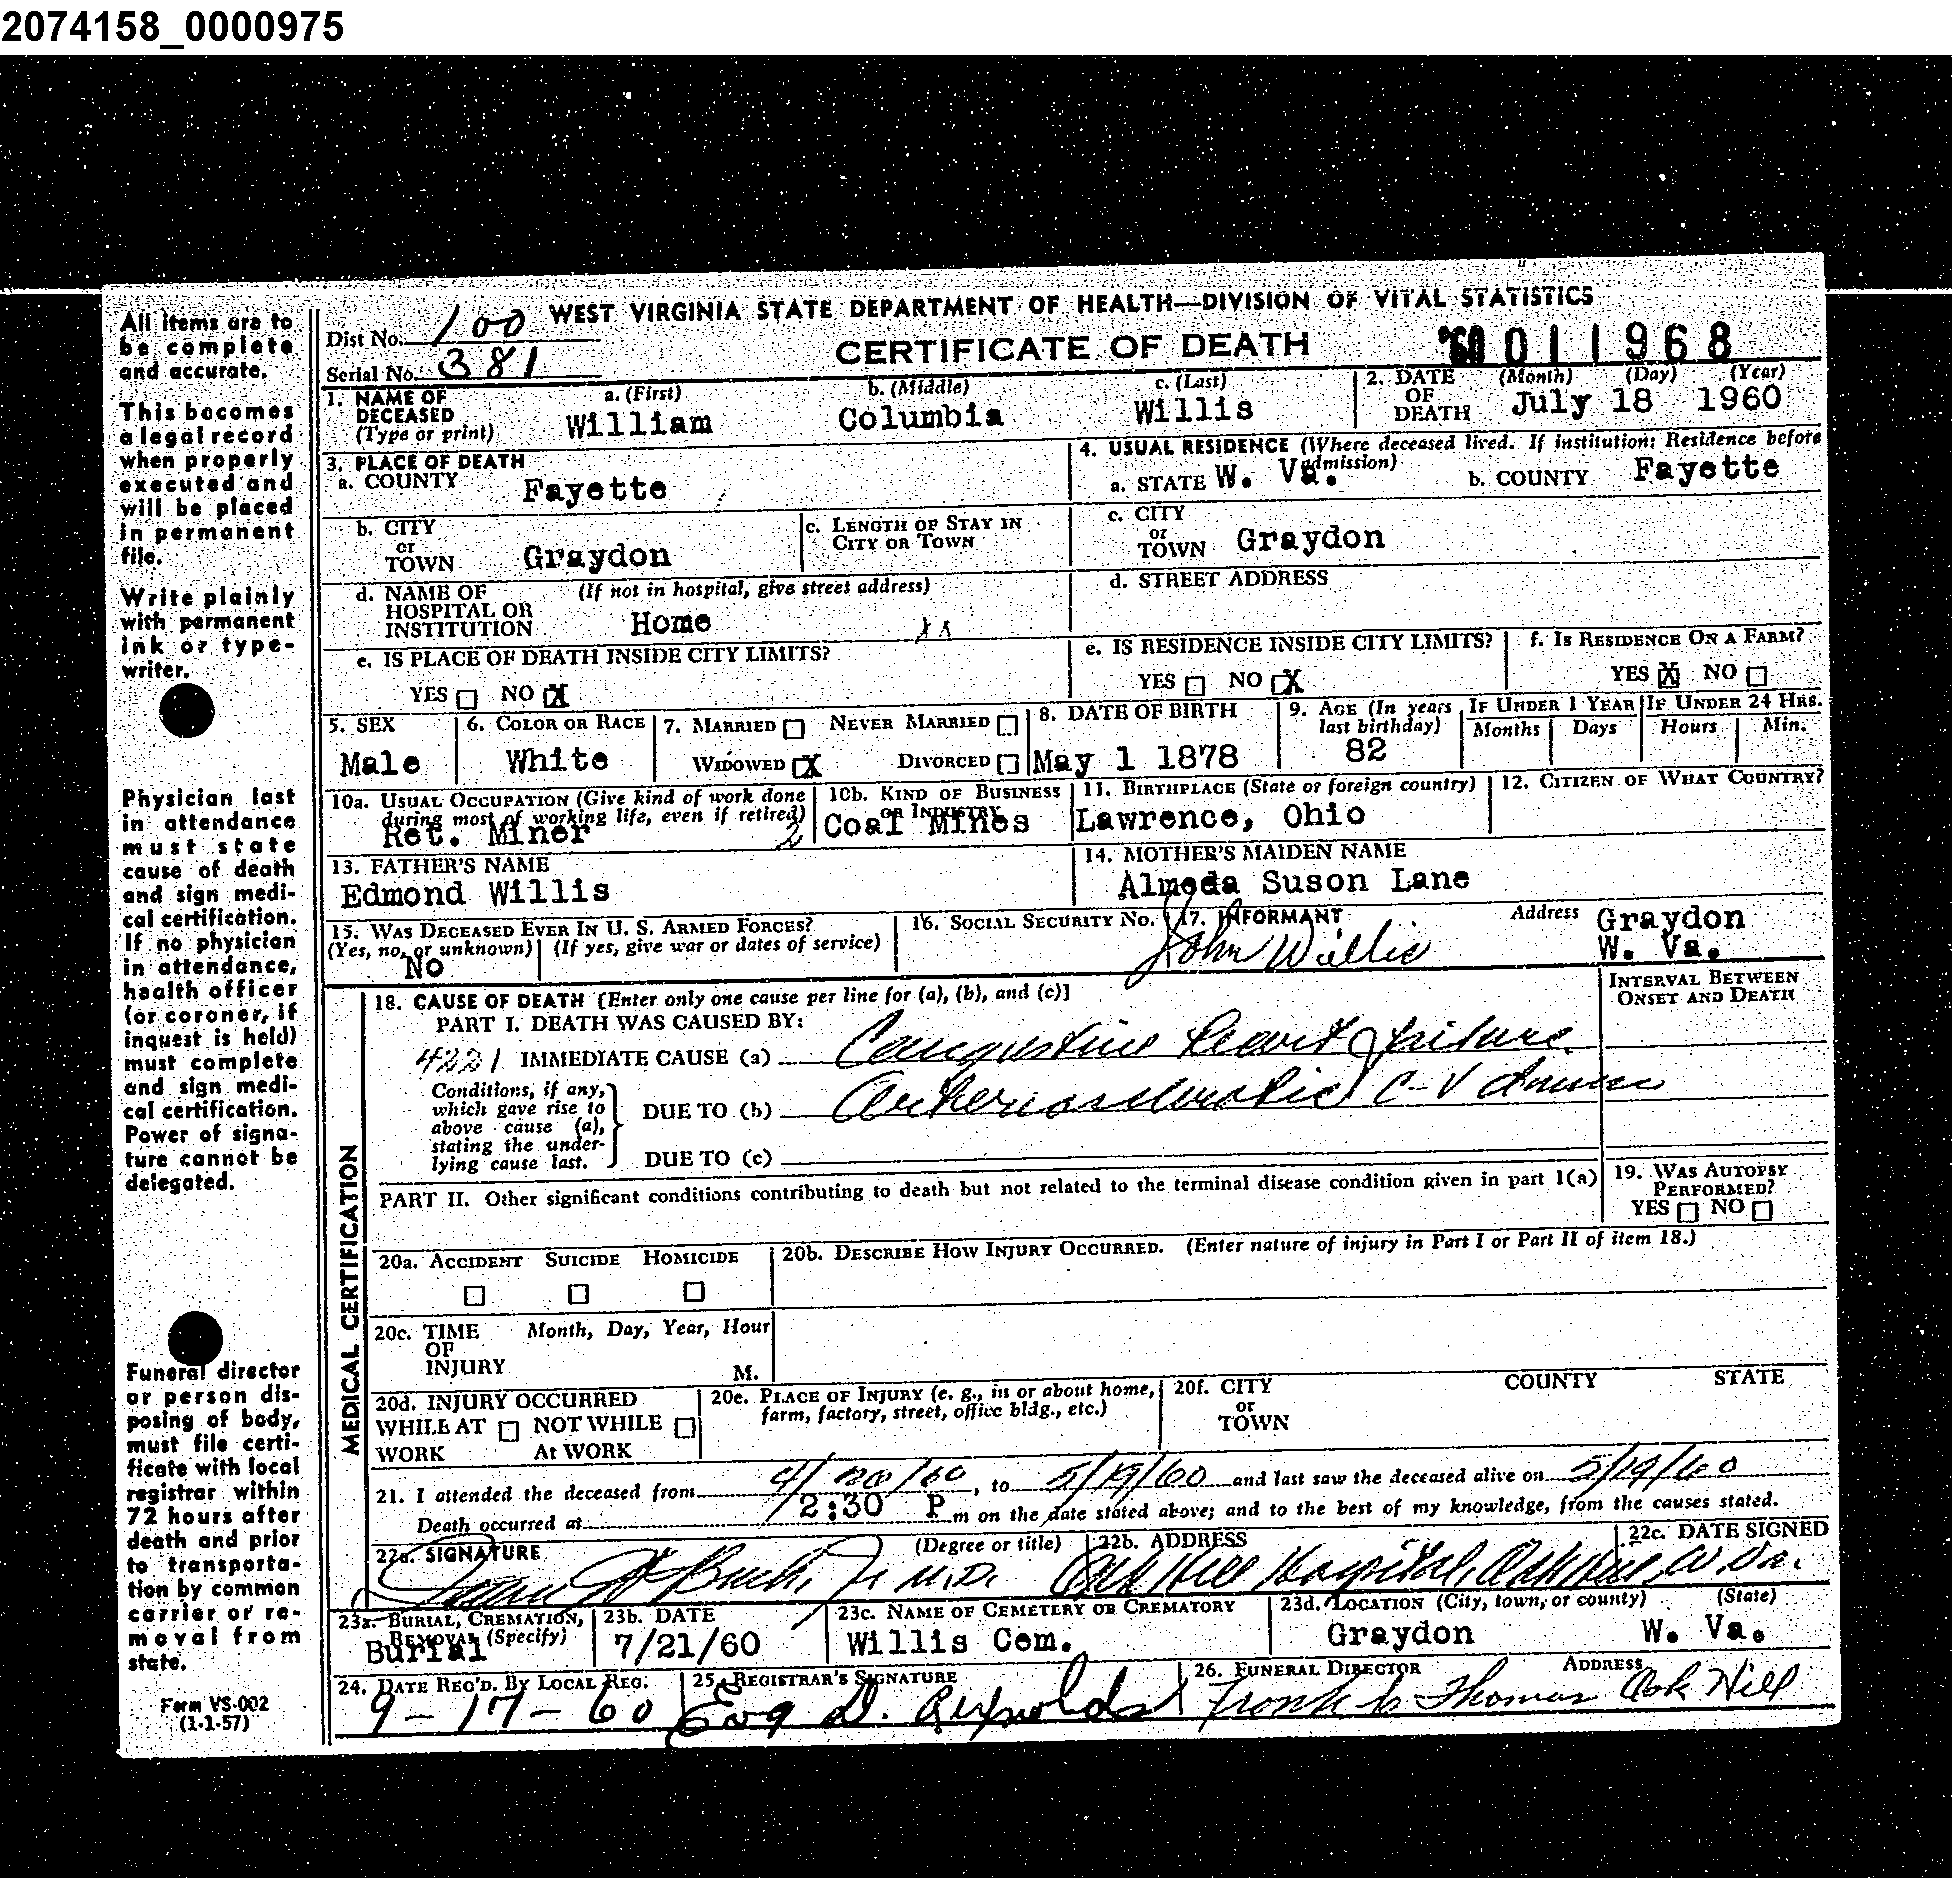 2074158_0000975
WEST VIRGINIA STATE DEPARTMENT OF HEALTH—DIVISION OF VITAL STATISTICS
CERTIFICATE OF DEATH
Dist No. 100
Serial No. 381
011968
All items are to
be complete
and accurate.
This becomes
a legal record
when properly
executed and
will be placed
in permanent
file.
Write plainly
with permanent
ink or type-
writer.
Physician last
in attendance
must state
cause of death
and sign medi-
cal certification.
If no physician
in attendance,
health officer
(or coroner, if
inquest is held)
must complete
and sign medi-
cal certification.
Power of signa-
ture cannot be
delegated.
Funeral director
or person dis-
posing of body,
must file certi-
ficate with local
registrar within
72 hours after
death and prior
to transporta-
tion by common
carrier or re-
moval from
state.
Form VS-002
(1-1-57)
1. NAME OF DECEASED (Type or print) a. (First) William b. (Middle) Columbia c. (Last) Willis
2. DATE OF DEATH (Month) (Day) (Year) July 18 1960
3. PLACE OF DEATH
a. COUNTY Fayette
b. CITY or TOWN Graydon
c. LENGTH OF STAY IN CITY OR TOWN
d. NAME OF HOSPITAL OR INSTITUTION (If not in hospital, give street address) Home
e. IS PLACE OF DEATH INSIDE CITY LIMITS?
YES NO X
4. USUAL RESIDENCE (Where deceased lived. If institution: Residence before admission)
a. STATE W. Va. b. COUNTY Fayette
c. CITY or TOWN Graydon
d. STREET ADDRESS
e. IS RESIDENCE INSIDE CITY LIMITS?
YES NO X
f. IS RESIDENCE ON A FARM?
YES X NO
5. SEX Male
6. COLOR OR RACE White
7. MARRIED NEVER MARRIED
WIDOWED X DIVORCED
8. DATE OF BIRTH May 1 1878
9. AGE (In years last birthday) 82
IF UNDER 1 YEAR Months Days
IF UNDER 24 HRS. Hours Min.
10a. USUAL OCCUPATION (Give kind of work done during most of working life, even if retired) Ret. Miner 2
10b. KIND OF BUSINESS OR INDUSTRY Coal Mines
11. BIRTHPLACE (State or foreign country) Lawrence, Ohio
12. CITIZEN OF WHAT COUNTRY?
13. FATHER'S NAME Edmond Willis
14. MOTHER'S MAIDEN NAME Almeda Suson Lane
15. WAS DECEASED EVER IN U. S. ARMED FORCES?
(Yes, no, or unknown) (If yes, give war or dates of service)
No
16. SOCIAL SECURITY No.
17. INFORMANT John Willis Address Graydon W. Va.
MEDICAL CERTIFICATION
18. CAUSE OF DEATH [Enter only one cause per line for (a), (b), and (c)]
INTERVAL BETWEEN ONSET AND DEATH
PART I. DEATH WAS CAUSED BY:
4221 IMMEDIATE CAUSE (a) Congestive heart failure
Conditions, if any, which gave rise to above cause (a), stating the under-lying cause last.
DUE TO (b) Arteriosclerotic C-V disease
DUE TO (c)
PART II. Other significant conditions contributing to death but not related to the terminal disease condition given in part 1(a)
19. WAS AUTOPSY PERFORMED?
YES NO
20a. ACCIDENT SUICIDE HOMICIDE
20b. DESCRIBE HOW INJURY OCCURRED. (Enter nature of injury in Part I or Part II of item 18.)
20c. TIME OF INJURY Month, Day, Year, Hour M.
20d. INJURY OCCURRED
WHILE AT WORK NOT WHILE At WORK
20e. PLACE OF INJURY (e. g., in or about home, farm, factory, street, office bldg., etc.)
20f. CITY or TOWN COUNTY STATE
21. I attended the deceased from 4/20/60, to 5/19/60 and last saw the deceased alive on 5/19/60
Death occurred at 2:30 P m on the date stated above; and to the best of my knowledge, from the causes stated.
22a. SIGNATURE (Degree or title) Jr. M.D.
22b. ADDRESS Oak Hill Hospital, Oak Hill, W. Va.
22c. DATE SIGNED
23a. BURIAL, CREMATION, REMOVAL (Specify) Burial
23b. DATE 7/21/60
23c. NAME OF CEMETERY OR CREMATORY Willis Cem.
23d. LOCATION (City, town, or county) (State) Graydon W. Va.
24. DATE REC'D. BY LOCAL REG. 9-17-60
25. REGISTRAR'S SIGNATURE Eva D. Reynolds
26. FUNERAL DIRECTOR ADDRESS Frank C. Thomas Oak Hill